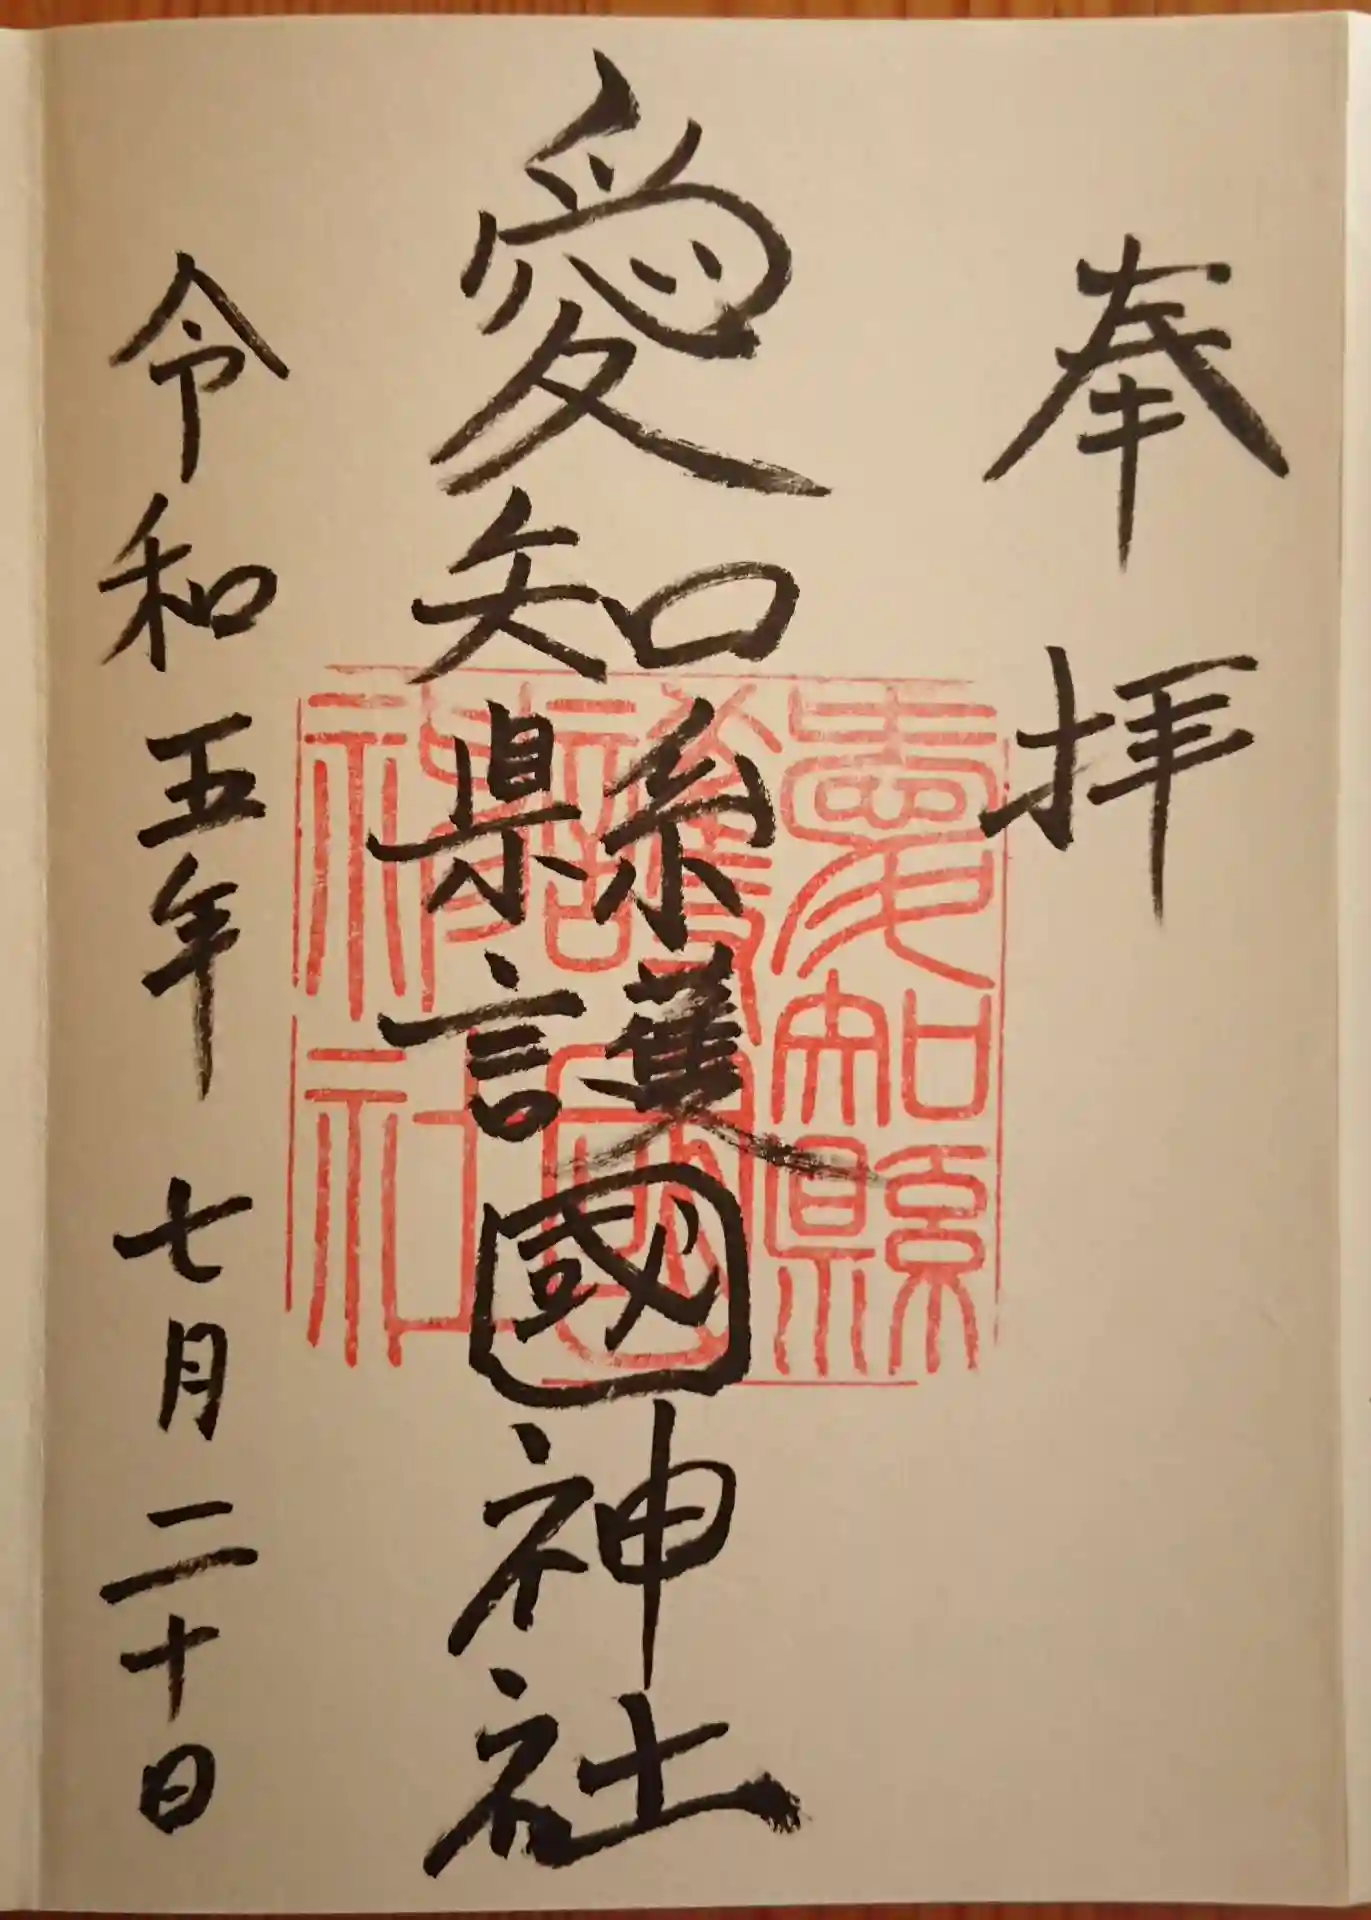 奉拝
愛知縣護國神社
愛知縣
護國
神社
令和五年 七月二十日